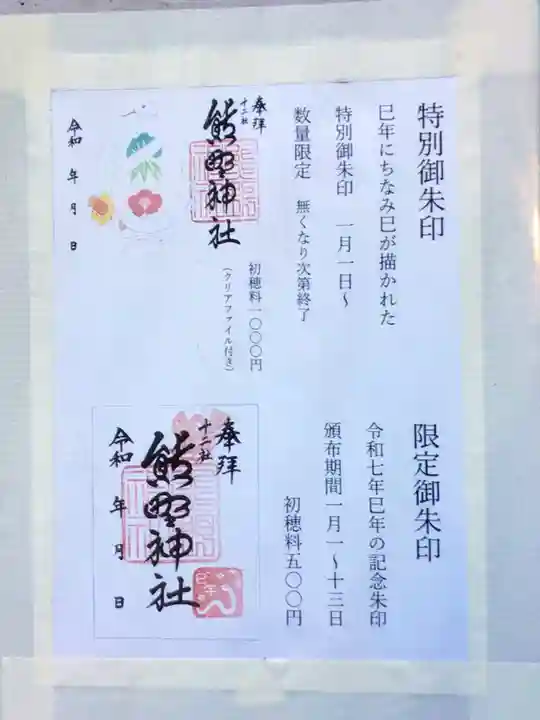 特別御朱印
巳年にちなみ巳が描かれた
特別御朱印　一月一日〜
数量限定　無くなり次第終了
初穂料一〇〇〇円
(クリアファイル付き)
奉拝
十二社
熊野神社
令和　年　月　日
限定御朱印
令和七年巳年の記念朱印
頒布期間一月一〜十三日
初穂料五〇〇円
奉拝
十二社
熊野神社
巳年
令和　年　月　日